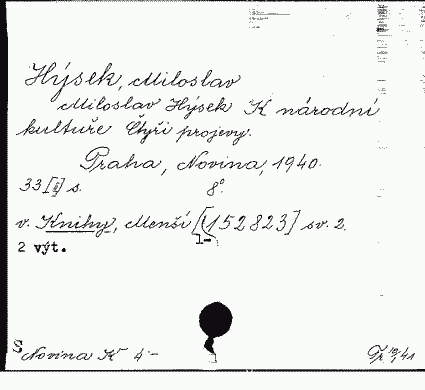 Hýsek, Miloslav
Miloslav Hýsek K národní
kultuře Čtyři projevy.
Praha, Novina, 1940.
33 [ ] s. 8°
v. Knihy, Menší [152823] sv. 2.
1-
2 výt.
S Novina K 4- Př. 10/41